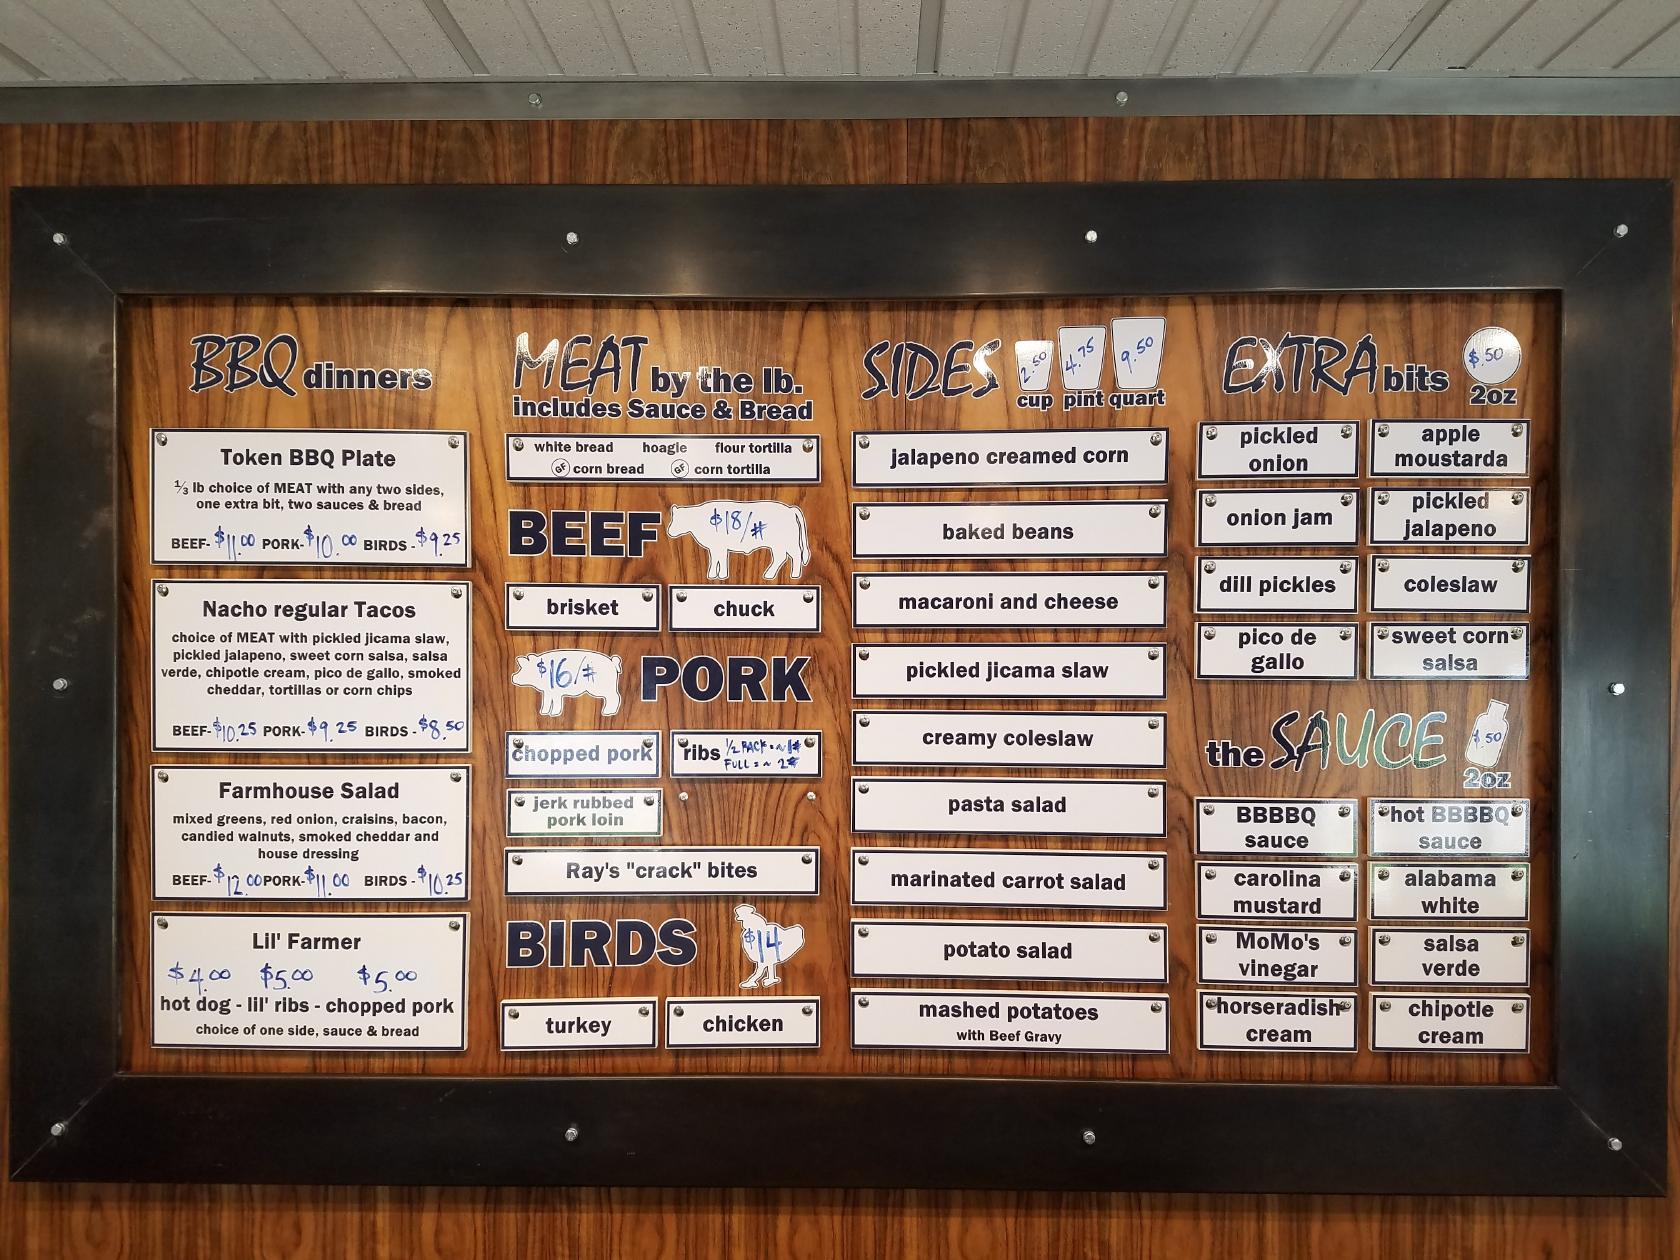 BBQ dinners
Token BBQ Plate
⅓ lb choice of MEAT with any two sides,
one extra bit, two sauces & bread
BEEF- $11.00 PORK- $10.00 BIRDS - $9.25
Nacho regular Tacos
choice of MEAT with pickled jicama slaw,
pickled jalapeno, sweet corn salsa, salsa
verde, chipotle cream, pico de gallo, smoked
cheddar, tortillas or corn chips
BEEF- $10.25 PORK- $9.25 BIRDS - $8.50
Farmhouse Salad
mixed greens, red onion, craisins, bacon,
candied walnuts, smoked cheddar and
house dressing
BEEF- $12.00 PORK- $11.00 BIRDS - $10.25
Lil' Farmer
$4.00 $5.00 $5.00
hot dog - lil' ribs - chopped pork
choice of one side, sauce & bread
MEAT by the lb.
includes Sauce & Bread
white bread hoagie flour tortilla
GF corn bread GF corn tortilla
BEEF $18/#
brisket chuck
$16/# PORK
chopped pork
ribs 1/2 RACK = ~ 1#
FULL = ~ 2#
jerk rubbed
pork loin
Ray's "crack" bites
BIRDS $14
turkey chicken
SIDES 2.50 4.75 9.50
cup pint quart
jalapeno creamed corn
baked beans
macaroni and cheese
pickled jicama slaw
creamy coleslaw
pasta salad
marinated carrot salad
potato salad
mashed potatoes
with Beef Gravy
EXTRA bits $.50
2oz
pickled
onion
apple
moustarda
onion jam
pickled
jalapeno
dill pickles
coleslaw
pico de
gallo
sweet corn
salsa
the SAUCE $.50
2oz
BBBBQ
sauce
hot BBBBQ
sauce
carolina
mustard
alabama
white
MoMo's
vinegar
salsa
verde
horseradish
cream
chipotle
cream